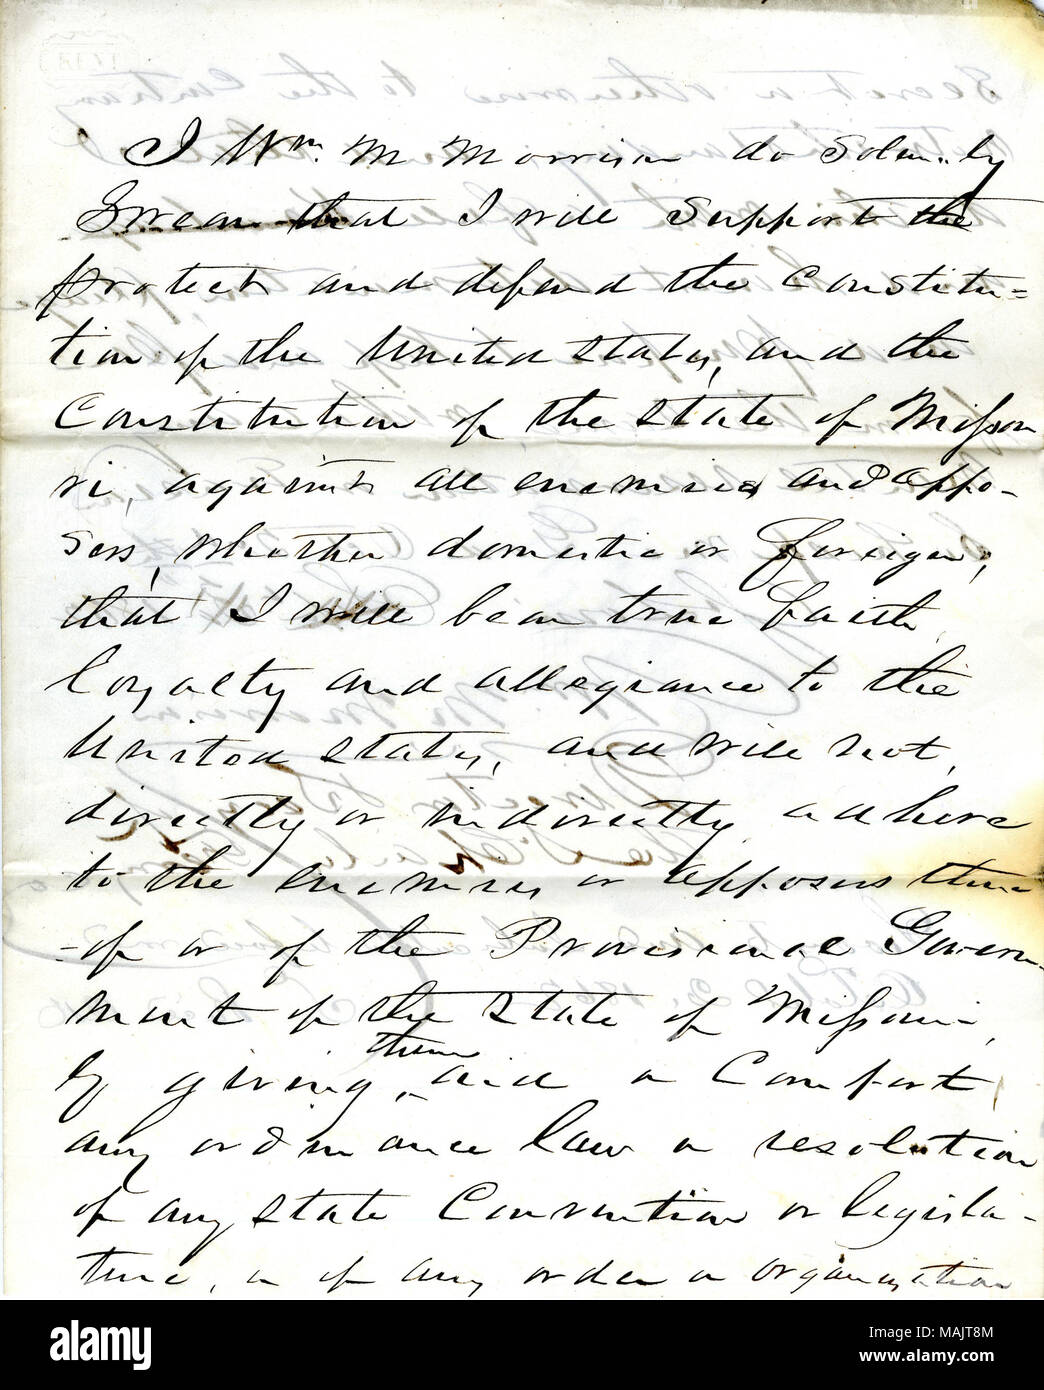 I Wm. M Morrison do Solemnly
Swear that I will Support the
protect and defend the Constitu=
tion of the United States, and the
Constitution of the State of Missou
ri, against all enemies and oppo-
sers, whether domestic or foreign;
that I will bear true faith,
loyalty and allegiance to the
United States, and will not,
directly or indirectly adhere
to the enemies or opposers there
-of or of the Provisional Govern-
ment of the State of Missouri,
by giving them aid or Comfort,
any ordinance law or resolution
of any State Convention or legisla-
ture, or of any order or organization
alamy
Image ID: MAJT8M
www.alamy.com